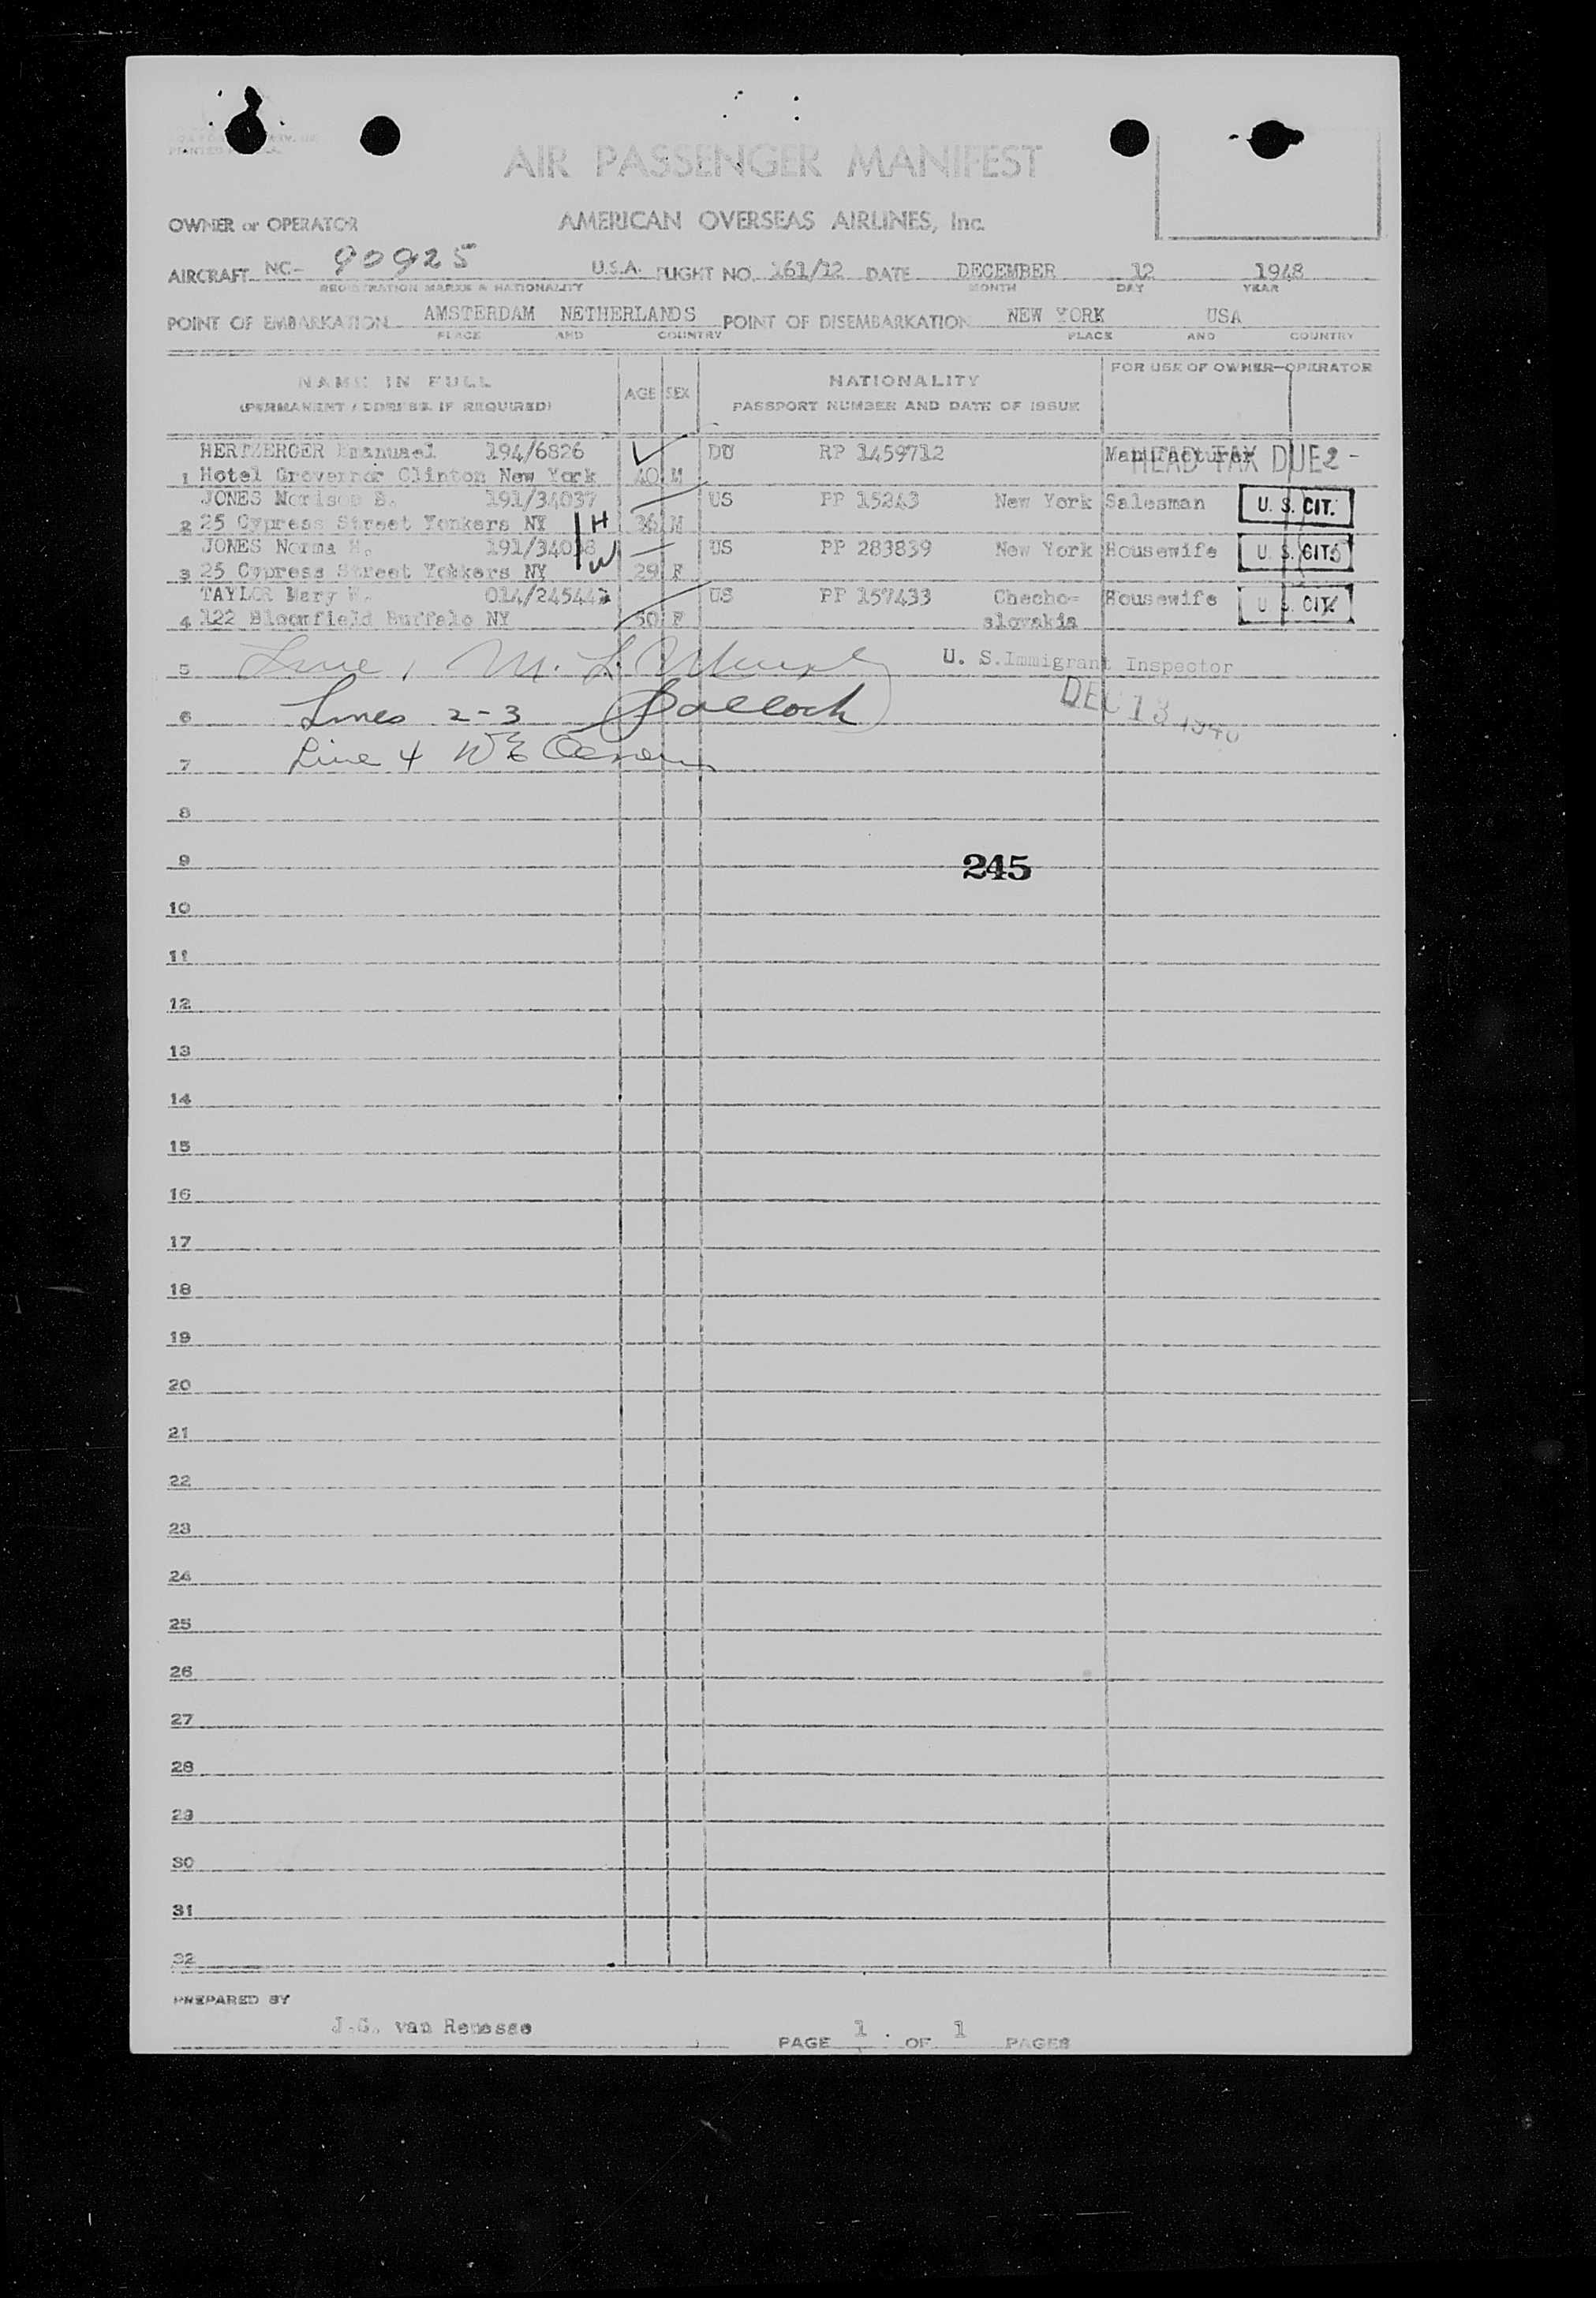 PRINTED
AIR PASSENGER MANIFEST
OWNER or OPERATOR AMERICAN OVERSEAS AIRLINES, Inc.
AIRCRAFT NC- 90925 U.S.A. FLIGHT NO. 161/12 DATE DECEMBER 12 1948
REGISTRATION MARKS & NATIONALITY MONTH DAY YEAR
POINT OF EMBARKATION AMSTERDAM NETHERLANDS POINT OF DISEMBARKATION NEW YORK USA
PLACE AND COUNTRY PLACE AND COUNTRY
NAME IN FULL AGE SEX NATIONALITY FOR USE OF OWNER-OPERATOR
(PERMANENT ADDRESS IF REQUIRED) PASSPORT NUMBER AND DATE OF ISSUE
HERTZBERGER Emanuael 194/6826 DU RP 1459712 Manufacturer HEAD TAX DUE 2-
1 Hotel Groverror Clinton New York 40 M
JONES Morison B. 191/34037 US PP 15243 New York Salesman U. S. CIT.
2 25 Cypress Street Yonkers NY H 36 M
JONES Norma H. 191/34038 US PP 283839 New York Housewife U. S. CIT.
3 25 Cypress Street Yonkers NY W 29 F
TAYLOR Mary 014/245442 US PP 157433 Checho= Housewife U. S. CIT.
4 122 Bloomfield Buffalo NY 50 F slovakia
5 Line 1 M. L. Murphy U. S. Immigrant Inspector
6 Lines 2-3 Pollock DEC 13 1948
7 Line 4 WE
8
9 245
10
11
12
13
14
15
16
17
18
19
20
21
22
23
24
25
26
27
28
29
30
31
32
PREPARED BY
J.C. van Renesse PAGE 1 OF 1 PAGES